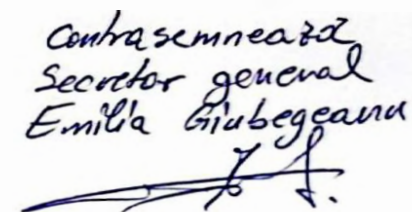 Contrasemnează
Secretor general
Emilia Giubegeanu